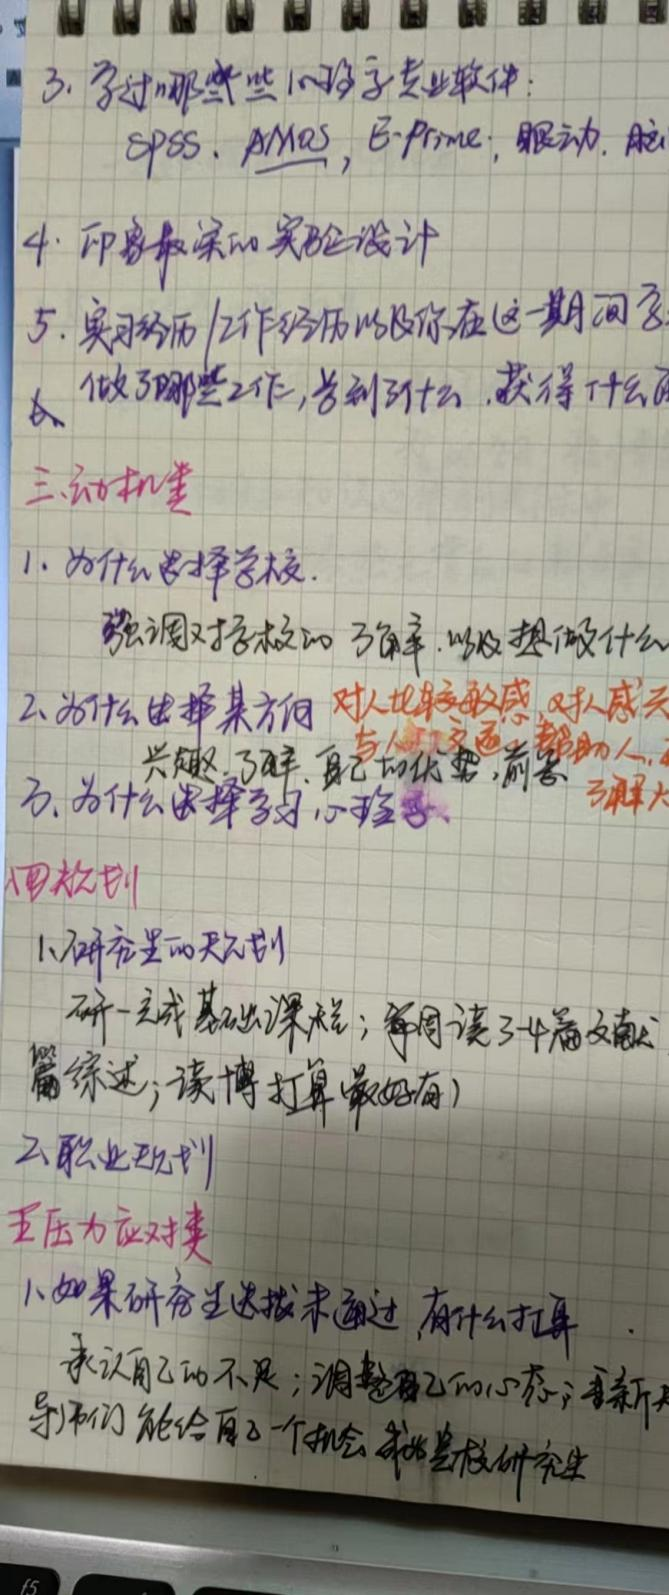 3. 学过哪些些心理学专业软件:
SPSS、AMOS, E-Prime, 眼动. 脑
4. 印象最深的实验设计
5. 实习经历/工作经历以及你在这一期间
做了哪些工作,学到了什么.获得什么
三.动机类
1. 为什么选择学校.
强调对学校的了解.以及想做什么
2、为什么选择某方向 对人比较敏感,对人感
与人 交通,帮助人,
兴趣、了解、自己的优势,前景 了解
3、为什么选择学习心理学、
四规划
1、研究生的规划
研一完成基础课程;每周读3-4篇文献
篇综述;读博打算(最好有)
2、职业规划
五压力应对类
1、如果研究生选拔未通过,有什么打算.
承认自己的不足;调整自己的心态;重新
导师们能给自己一个机会 我 校研究生
f5